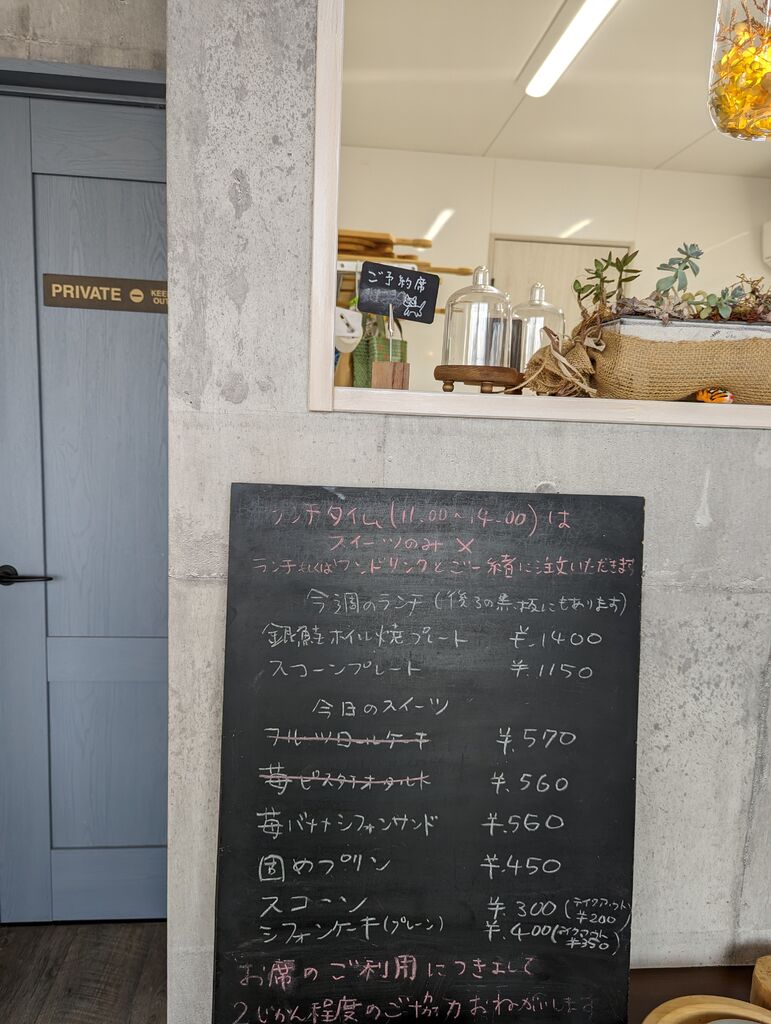 PRIVATE KEE
OUT
ご予約席
ランチタイム(11.00~14.00)は
スイーツのみ ×
ランチもしくはワンドリンクとご一緒に注文いただきます
今週のランチ(後ろの黒板にもあります)
銀鮭ホイル焼プレート ¥.1400
スコーンプレート ¥.1150
今日のスイーツ
フルーツロールケーキ ¥.570
苺ピスタチオタルト ¥.560
苺バナナシフォンサンド ¥.560
固めプリン ¥.450
スコーン ¥.300(テイクアウト
¥200)
シフォンケーキ(プレーン) ¥.400(テイクアウト
¥350)
お席のご利用につきまして
2じかん程度のご協力おねがいします